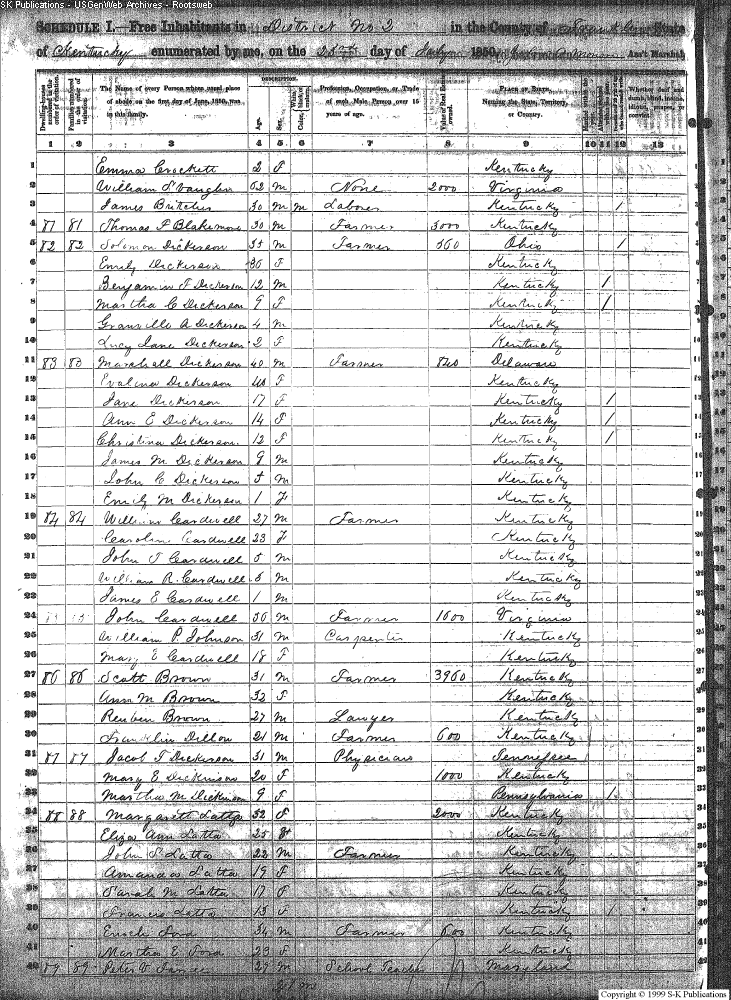 SK Publications - USGenWeb Archives - Rootsweb
SCHEDULE I.—Free Inhabitants in District No 2 in the County of State
of Kentucky enumerated by me, on the 25th day of July 1850. Ass't Marshal.
DESCRIPTION.
Dwelling-houses numbered in the order of visitation. Families numbered in the order of visitation. The Name of every Person whose usual place of abode on the first day of June, 1850, was in this family. Age. Sex. White, black, or mulatto. Color, Profession, Occupation, or Trade of each Male Person over 15 years of age. Value of Real Estate owned. PLACE OF BIRTH. Naming the State, Territory, or Country. Married within the year. Whether deaf and dumb, blind, insane, idiotic, pauper, or convict.
1 2 3 4 5 6 7 8 9 10 11 12 13
1 Emma Crockett 2 F Kentucky
2 William S Vaughn 62 M None 2000 Virginia
3 James Britcher 30 M M Laborer Kentucky /
4 81 81 Thomas F Blakemore 30 M Farmer 3000 Kentucky
5 82 82 Solomon Dickerson 35 M Farmer 560 Ohio /
6 Emily Dickerson 36 F Kentucky
7 Benjamin F Dickerson 12 M Kentucky /
8 Martha C Dickerson 9 F Kentucky /
9 Granville A Dickerson 4 M Kentucky
10 Lucy Jane Dickerson 2 F Kentucky
11 83 83 Marshall Dickerson 40 M Farmer 840 Delaware
12 Evalina Dickerson 40 F Kentucky
13 Jane Dickerson 17 F Kentucky /
14 Ann E Dickerson 14 F Kentucky /
15 Christina Dickerson 12 F Kentucky /
16 James M Dickerson 9 M Kentucky
17 John C Dickerson 5 M Kentucky
18 Emily M Dickerson 1 F Kentucky
19 84 84 William Cardwell 27 M Farmer Kentucky
20 Caroline Cardwell 23 F Kentucky
21 John T Cardwell 5 M Kentucky
22 William R. Cardwell 3 M Kentucky
23 James E Cardwell 1 M Kentucky
24 John Cardwell 56 M Farmer 1600 Virginia
25 William P. Johnson 31 M Carpenter Kentucky
26 Mary E Cardwell 18 F Kentucky
27 86 86 Scott Brown 31 M Farmer 3960 Kentucky
28 Ann M Brown 32 F Kentucky
29 Reuben Brown 27 M Lawyer Kentucky
30 Franklin Dillon 21 M Farmer 600 Kentucky
31 87 87 Jacob T Dickerson 31 M Physician Tennessee
32 Mary E Dickinson 20 F 1000 Kentucky
33 Martha M Dickinson 9 F Pennsylvania 1
34 88 88 Margarett Latta 52 F 2000 Kentucky
35 Eliza Ann Latta 25 F Kentucky
36 John S Latta 22 M Farmer Kentucky
37 Amanda Latta 19 F Kentucky
38 Sarah M Latta 17 F Kentucky
39 Francis Latta 13 F Kentucky /
40 Enoch Ford 34 M Farmer 500 Kentucky
41 Martha E Ford 23 F Kentucky
42 89 89 Peter V 29 M School Teacher Maryland
Copyright © 1999 S-K Publications